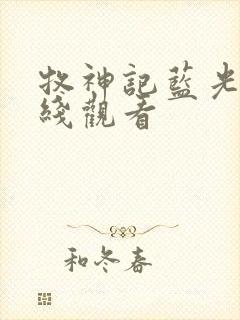 牧神記藍光
綫觀看
和冬春